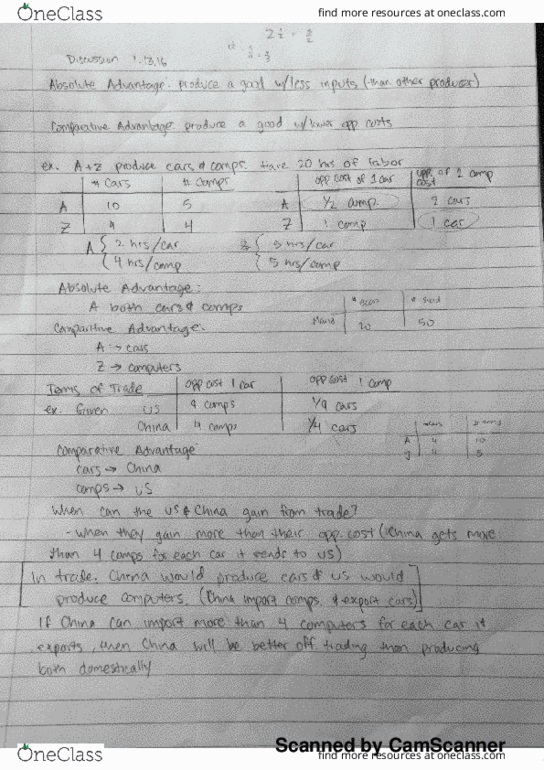 OneClass
find more resources at oneclass.com
Discussion 1.13.16
Absolute Advantage: produce a good w/less inputs (than other producer)
Comparative Advantage: produce a good w/lower opp costs
ex. A+Z produce cars & comps. Have 20 hrs of labor
# Cars # Comps opp cost of 1 car opp. cost of 1 comp
A 10 5 A 1/2 comp 2 cars
Z 4 4 Z 1 comp 1 car
A { 2 hrs/car Z { 5 hrs/car
4 hrs/comp 5 hrs/comp
Absolute Advantage:
A both cars & comps
Comparitive Advantage:
A → cars
Z → computers
20 50
Terms of Trade opp cost 1 car opp cost 1 comp
ex. Given US 9 comps 1/9 cars
China 4 comps 1/4 cars
A 4 10
Comparative Advantage
cars → China
comps → US
When can the US & China gain from trade?
- When they gain more than their opp. cost (China gets more
than 4 comps for each car it sends to US)
In trade, China would produce cars & US would
produce computers. (China import comps. & export cars)
If China can import more than 4 computers for each car it
exports, then China will be better off trading than producing
both domestically
Scanned by CamScanner
OneClass
find more resources at oneclass.com